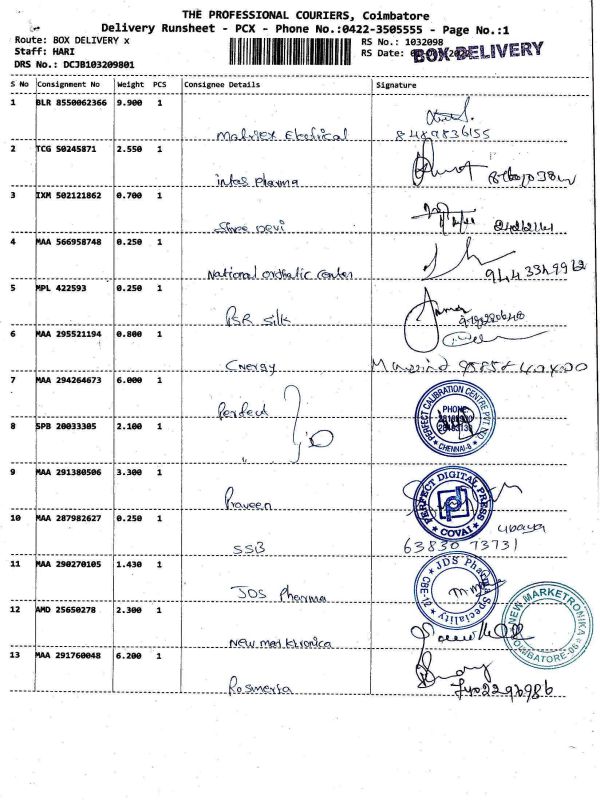 THE PROFESSIONAL COURIERS, Coimbatore
Delivery Runsheet - PCX - Phone No.:0422-3505555 - Page No.:1
Route: BOX DELIVERY x
RS No.: 1032098
Staff: HARI
RS Date:
BOX DELIVERY
DRS No.: DCJB103209801
S No Consignment No Weight PCS Consignee Details Signature
1 BLR 8550062366 9.900 1
8489836155
2 TCG 50245871 2.550 1
intas pharma
3 IXM 502121862 0.700 1
Shree Devi
4 MAA 566958748 0.250 1
National orthotic center 9443349962
5 MPL 422593 0.250 1
BSR silk
6 MAA 295521194 0.800 1
Cnergy
7 MAA 294264673 6.000 1
Perfect
PERFECT CALIBRATION CENTRE PVT. NO
PHONE
CHENNAI-8
8 SPB 20033305 2.100 1
9 MAA 291380506 3.300 1
Praveen
PERFECT DIGITAL PRESS
COVAI
10 MAA 287982627 0.250 1
SSB 63830 73731
11 MAA 290270105 1.430 1
JDS Pharma
JDS Pharma Speciality
CBE-12
12 AMD 25650278 2.300 1
New marktronica
NEW MARKETRONIKA
COIMBATORE-06
13 MAA 291760048 6.200 1
Rosmerta 7402296986